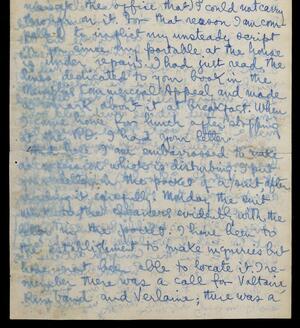 the office that I could not carry
through on it. For that reason I am com-
pelled to inflict my unsteady script
on you since my portable at the house
is under repair. I had just read the
lines dedicated to your book in the
Commercial Appeal, and made
a remark about it at breakfast. When
I came home for lunch after stopping
at the P.O. I had your letter
I am embarrassed to make
which is disturbing. I put
the pocket of a suit after
reading it carefully; Monday the suit
went to the cleaners evidently with the
the pocket. I have been to
the establishment to make inquiries but
able to locate it. I re-
member there was a call for Voltaire
Rimbaud, and Verlaine; there was a